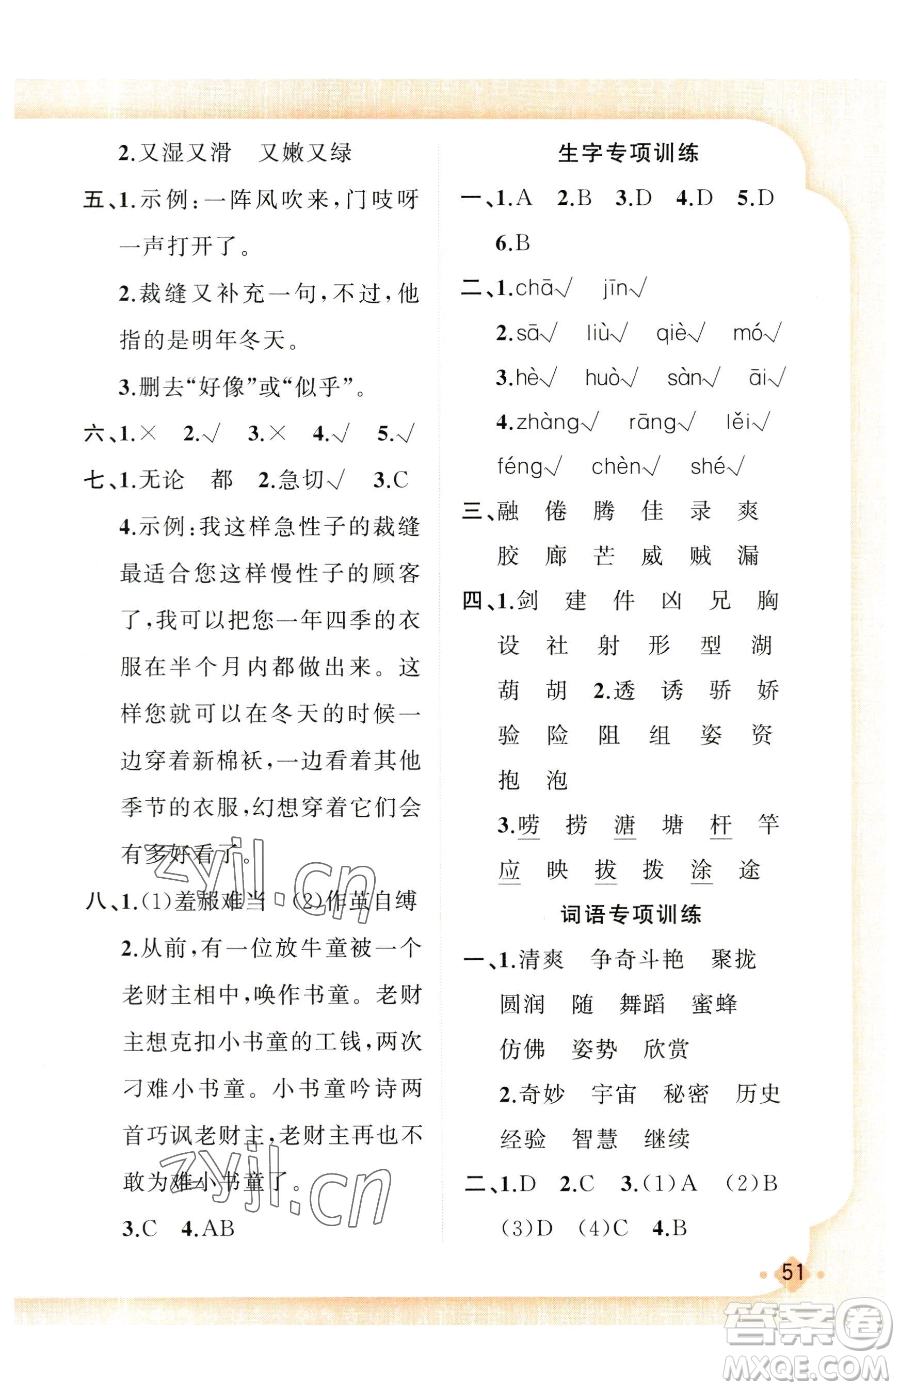 2.又湿又滑　又嫩又绿
五、1.示例:一阵风吹来,门吱呀
一声打开了。
2.裁缝又补充一句,不过,他
指的是明年冬天。
3.删去“好像”或“似乎”。
六、1.×　2.√　3.×　4.√　5.√
七、1.无论　都　2.急切√　3.C
4.示例:我这样急性子的裁缝
最适合您这样慢性子的顾客
了,我可以把您一年四季的衣
服在半个月内都做出来。这
样您就可以在冬天的时候一
边穿着新棉袄,一边看着其他
季节的衣服,幻想穿着它们会
有多好看了。
八、1.(1)羞赧难当　(2)作茧自缚
2.从前,有一位放牛童被一个
老财主相中,唤作书童。老财
主想克扣小书童的工钱,两次
刁难小书童。小书童吟诗两
首巧讽老财主,老财主再也不
敢为难小书童了。
3.C　4.AB
生字专项训练
一、1.A　2.B　3.D　4.D　5.D
6.B
二、1.chā√　jīn√
2.sā√　liù√　qiè√　mó√
3.hè√　huò√　sàn√　āi√
4.zhàng√　rāng√　lěi√
féng√　chèn√　shé√
三、融　倦　腾　佳　录　爽
胶　廊　芒　威　贼　漏
四、1.剑　建　件　凶　兄　胸
设　社　射　形　型　湖
葫　胡　2.透　诱　骄　娇
验　险　阻　组　姿　资
抱　泡
3.唠　捞　溏　塘　杆　竿
应　映　拔　拨　涂　途
词语专项训练
一、1.清爽　争奇斗艳　聚拢
圆润　随　舞蹈　蜜蜂
仿佛　姿势　欣赏
2.奇妙　宇宙　秘密　历史
经验　智慧　继续
二、1.D　2.C　3.(1)A　(2)B
(3)D　(4)C　4.B
51
zyjl.cn
zyjl.cn
答案圈
MXQE.COM